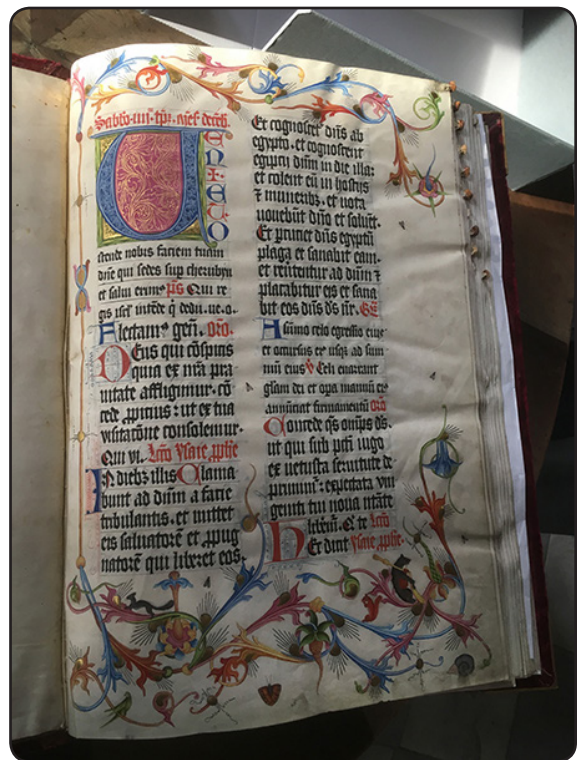 U
E
N
I
E
T
O
stende nobis faciem tuam
dñe qui sedes sup cherubyn
et salui erimꝰ p̄s Qui re
gis isrl̄ intēde q̇ dedu.ue.o.
Alectamꝰ geñ. oro.
Deus qui cōspicis
quia ex nr̄a pra
uitate affligimur. cō
cede ꝓpicius : ut ex tua
visitatōne consolemur.
Qui vi. Lc̄o ysaie ꝓphe
In diebꝫ illis Clama
bunt ad dn̄m a facie
tribulantis. et mittet
eis saluatorē et ꝓpug
natorē qui liberet eos.
Et cognoscet̄ dn̄s ab
egypto. et cognoscent
egiptij dn̄m in die illa:
et colent eū in hostijs
⁊ muneribꝫ. et uota
uouebūt dn̄o et soluēt.
Et ꝑcuciet dn̄s egyptū
plaga et sanabit eam.
et reūtentur ad dn̄m ⁊
placabitur eis et sana
bit eos dn̄s ds̄ nr̄.
A summo celo egressio eiꝰ
et occursus eiꝰ usqꝫ ad sum
mū eius ℣ Celi enarrant
gl̄am dei et opa manuū eiꝰ
annūciat firmamentū oro
Concede qs̄ om̄ps ds̄.
ut qui sub pcti iugo
ex uetusta seruitute de
primimꝰ: expectata vni
geniti tui noua natītate
liberem̄. Q te Lc̄o
Et dicit ysaie ꝓphe.